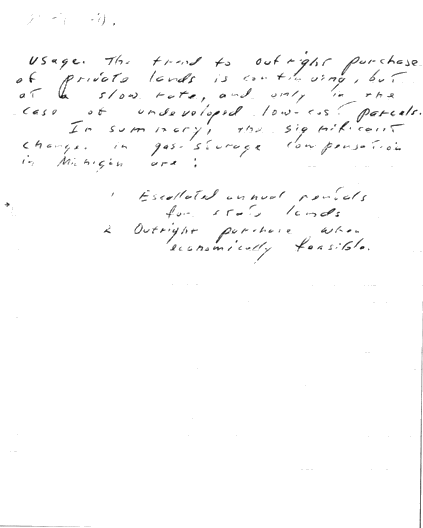 usage. The trend to outright purchase
of private lands is continuing, but
at a slow rate, and only in the
case of undeveloped low-cost parcels.
In summary, the significant
changes in gas-storage compensation
in Michigan are:
1 Escallated annual rentals
for state lands
2 Outright purchase when
economically feasible.